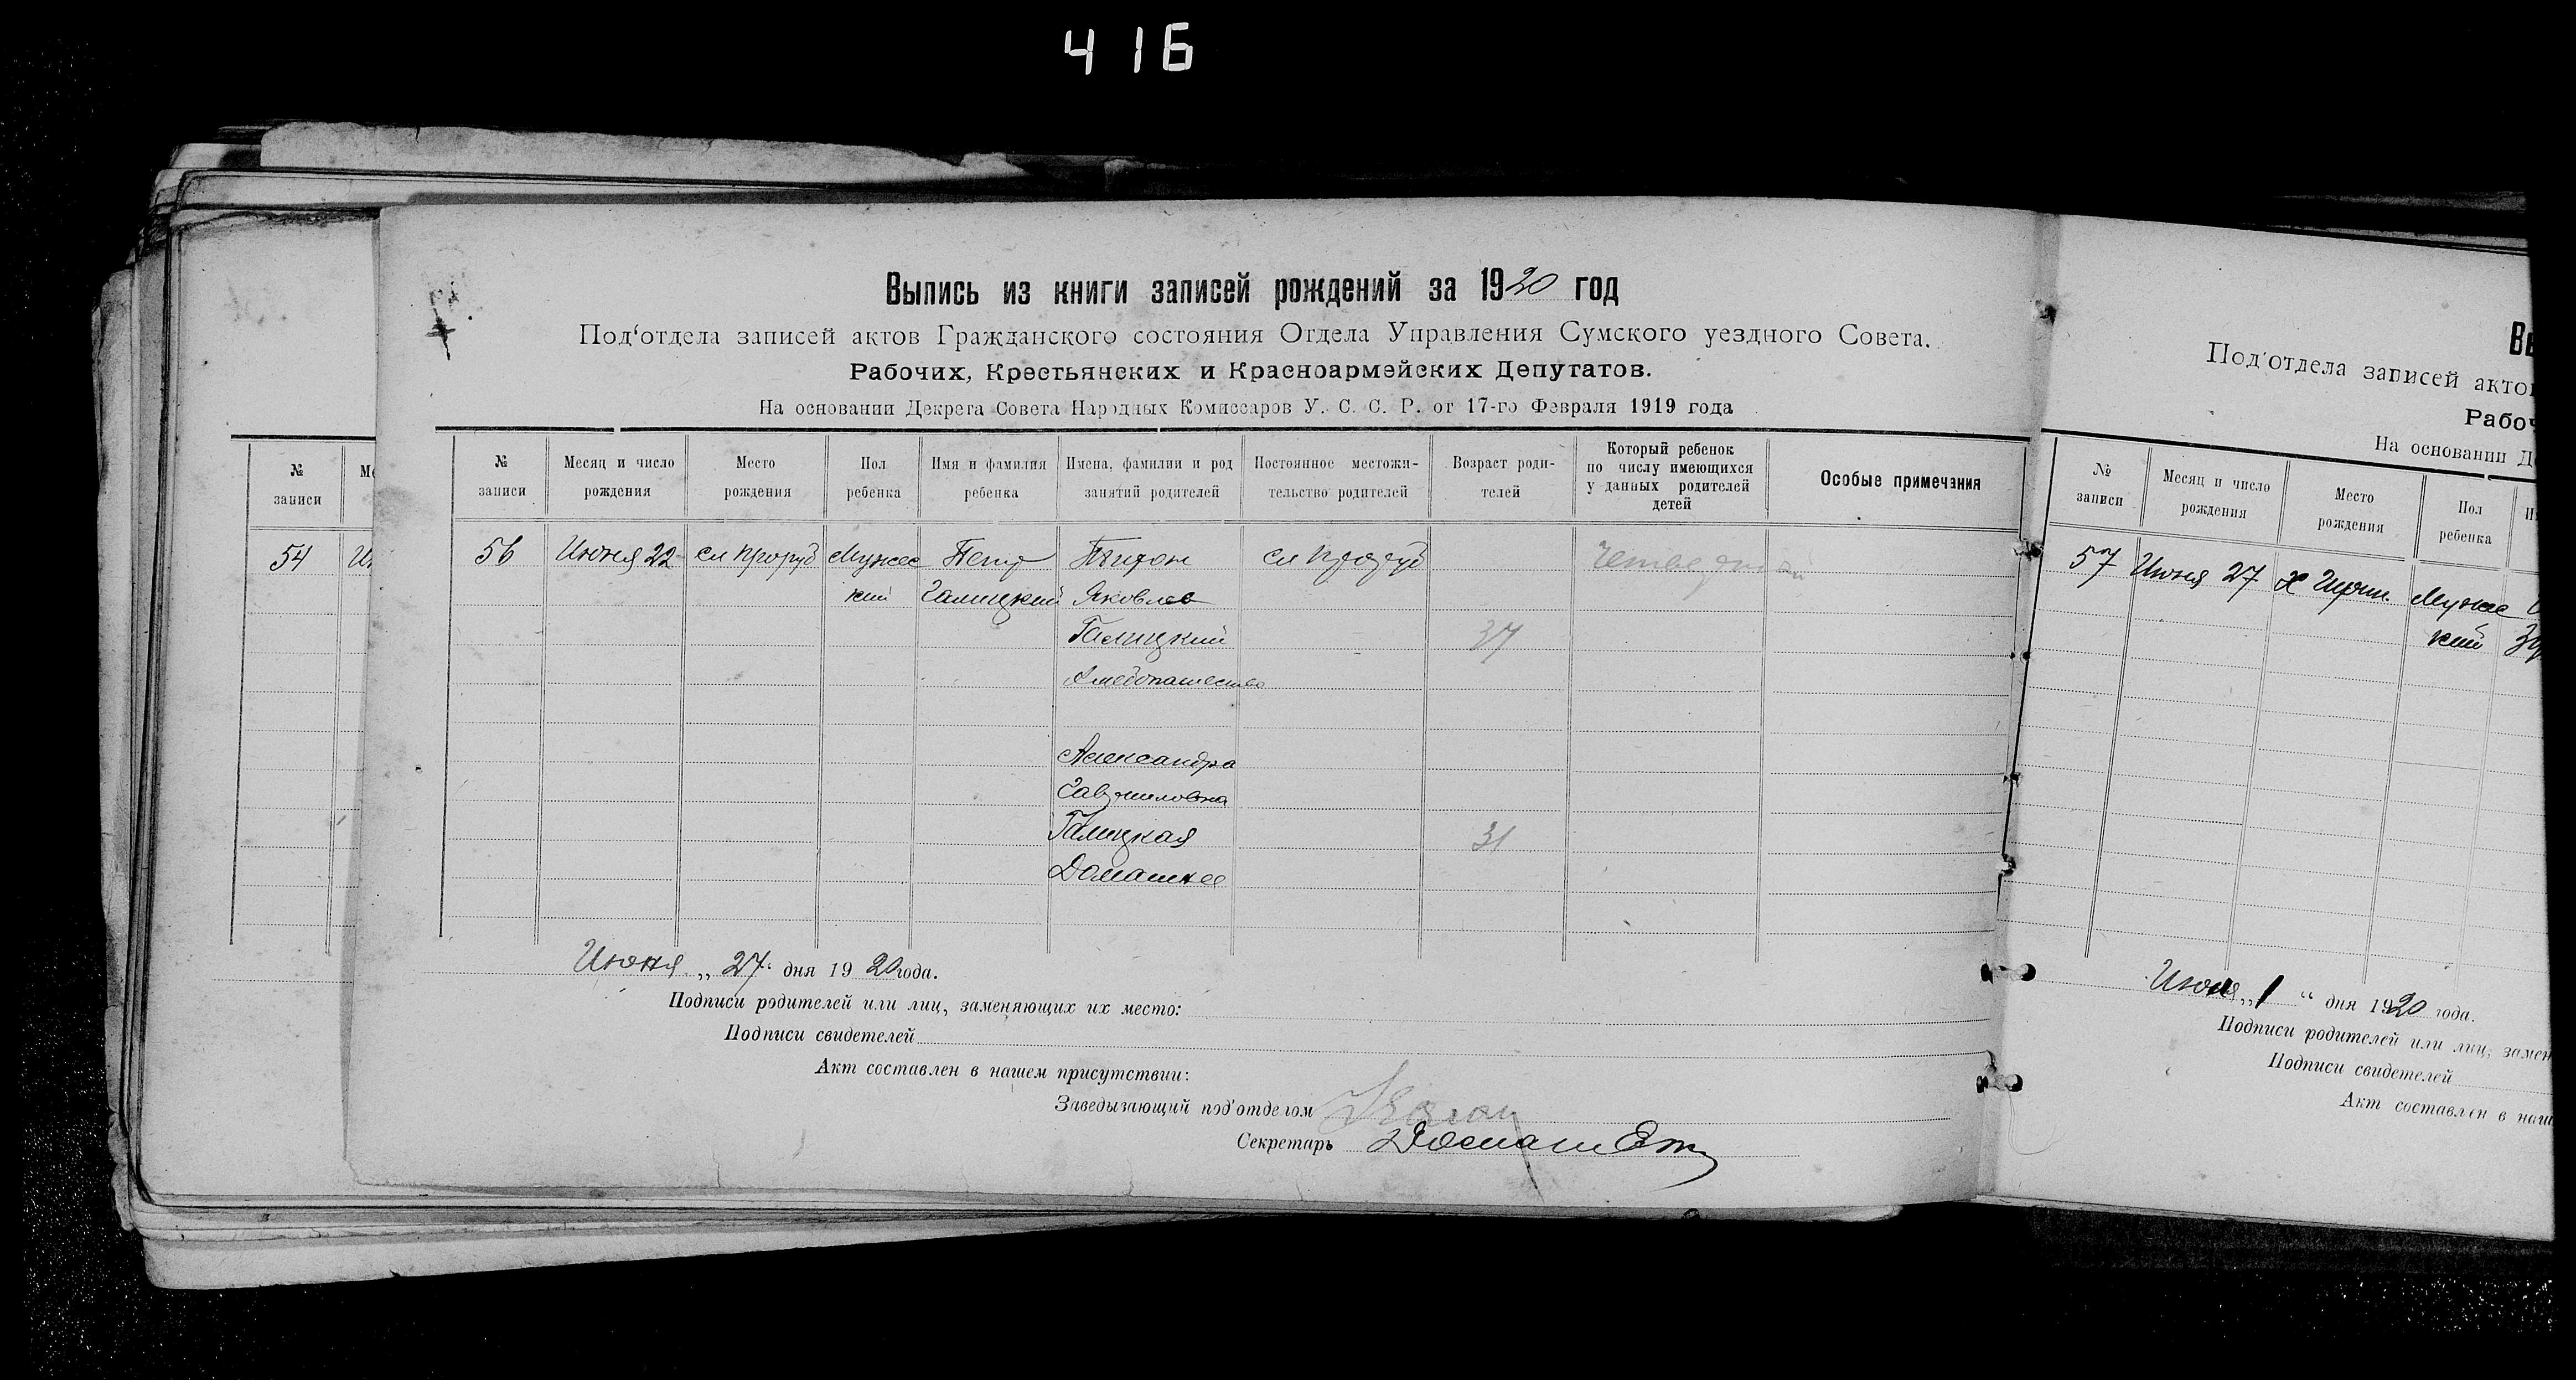 416
Выпись из книги записей рождений за 1920 год
Под‘отдела записей актов Гражданского состояния Отдела Управления Сумского уездного Совета.
Рабочих, Крестьянских и Красноармейских Депутатов.
На основании Декрета Совета Народных Комиссаров У. С. С. Р. от 17-го Февраля 1919 года
№ записи
Месяц и число рождения
Место рождения
Пол ребенка
Имя и фамилия ребенка
Имена, фамилии и род занятий родителей
Постоянное местожи-тельство родителей
Возраст роди-телей
Который ребенок по числу имеющихся у данных родителей детей
Особые примечания
56 Июня 22 сл Проруб Мужес Петр сл Проруб
кий Галицкий Яковлев
Галицкий 37
Хлебопашество
Александра
Гавриловна
Галицкая 31
Домашнее
Июня „ 27 “ дня 1920 года.
Подписи родителей или лиц, заменяющих их место:
Подписи свидетелей
Акт составлен в нашем присутствии:
Заведызающий под‘отделом
Секретарь
№ записи
54
Под‘отдела записей акто
Рабоч
На основании Д
№ записи
Месяц и число рождения
Место рождения
Пол ребенка
57 Июня 27 Мужес
кий
„ 1 “ дня 1920 года.
Подписи родителей или лиц, замен
Подписи свидетелей
Акт составлен в наш